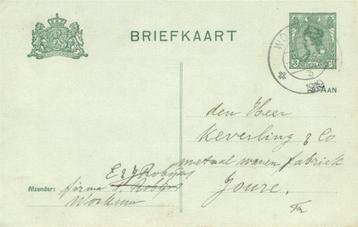 BRIEFKAART
WO
AAN
den Heer
Keverling & Co
metaal waren fabriek
Joure.
Fr
Afzender: firma
Workum